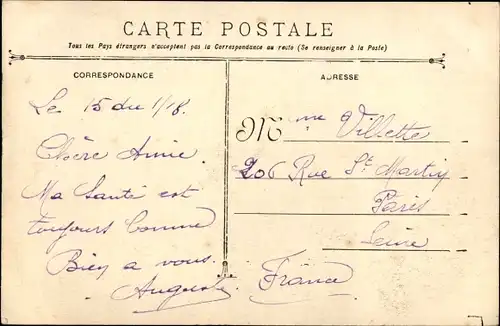 CARTE POSTALE
Tous les Pays étrangers n'acceptent pas la Correspondance au recto (Se renseigner à la Poste)
CORRESPONDANCE
Le 15 du 1/18.
Chère Amie.
Ma Santé est
toujours bonne
Bien a vous.
Auguste
ADRESSE
Mme Villette
206 Rue St Martin
Paris
Seine
France